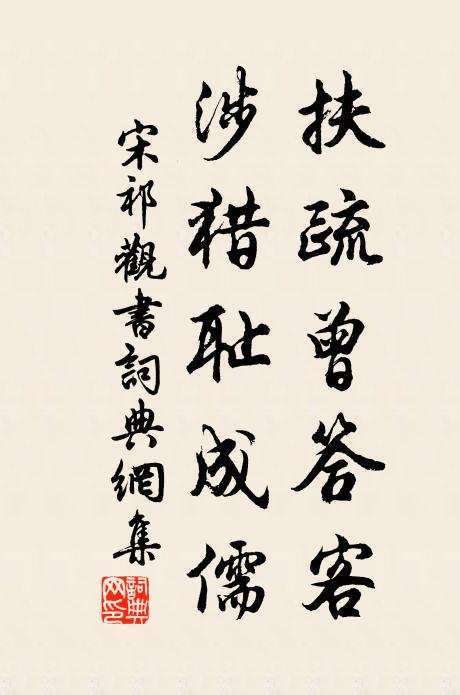 扶疏曾答客
涉猎耻成儒
宋祁觀書詞典網集
詞典網印